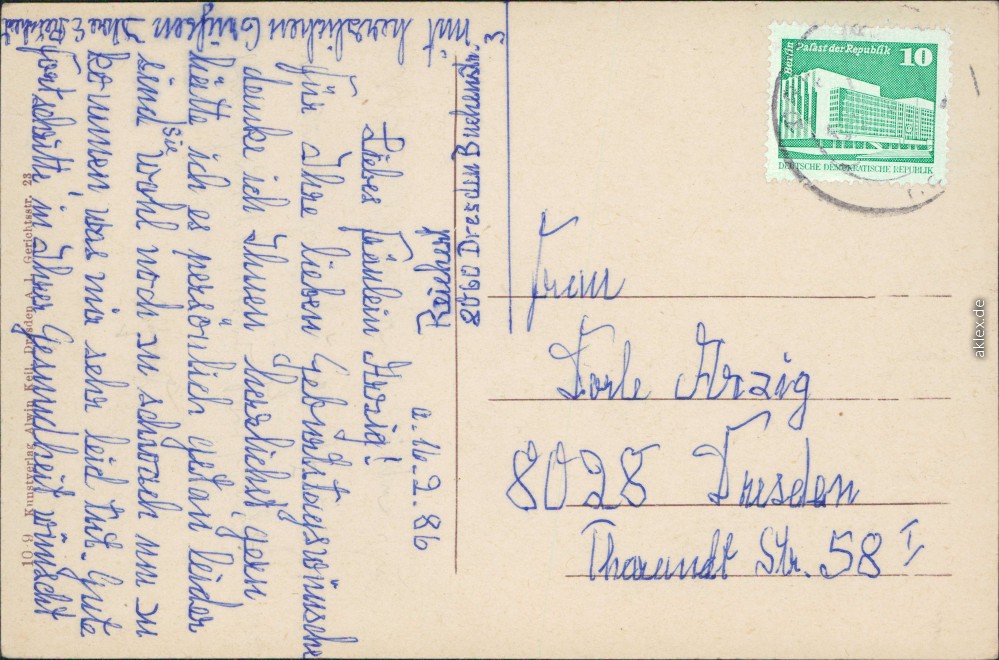 a. 16.2.86
Liebes Fräulein Arzig!
Für Ihre lieben Geburtstagswünsche
danke ich Ihnen herzlichst, gern
hätte ich es persönlich getan leider
sind sie wohl noch zu schwach um zu
kommen was mir sehr leid tut. Gute
Fortschritte in Ihrer Gesundheit wünscht
mit herzlichen Grüßen
Ihre E.
8060 Dresden Buchenstr.
3
Frau
Dorle Arzig
8028 Dresden
Tharandt Str. 58 I
Berlin
Palast der Republik
10
DEUTSCHE DEMOKRATISCHE REPUBLIK
10 9 Kunstverlag Alwin Keil, Dresden-A. 1, Gerichtsstr. 23
aklex.de